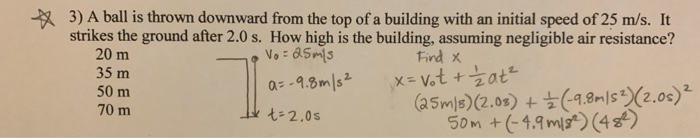 3) A ball is thrown downward from the top of a building with an initial speed of 25 m/s. It
strikes the ground after 2.0 s. How high is the building, assuming negligible air resistance?
20 m
35 m
50 m
70 m
V₀ = 25m/s
a = -9.8m/s²
t = 2.0s
Find x
x = V₀t + ½at²
(25m/s)(2.0s) + ½(-9.8m/s²)(2.0s)²
50m + (-4.9m/s²)(4s²)